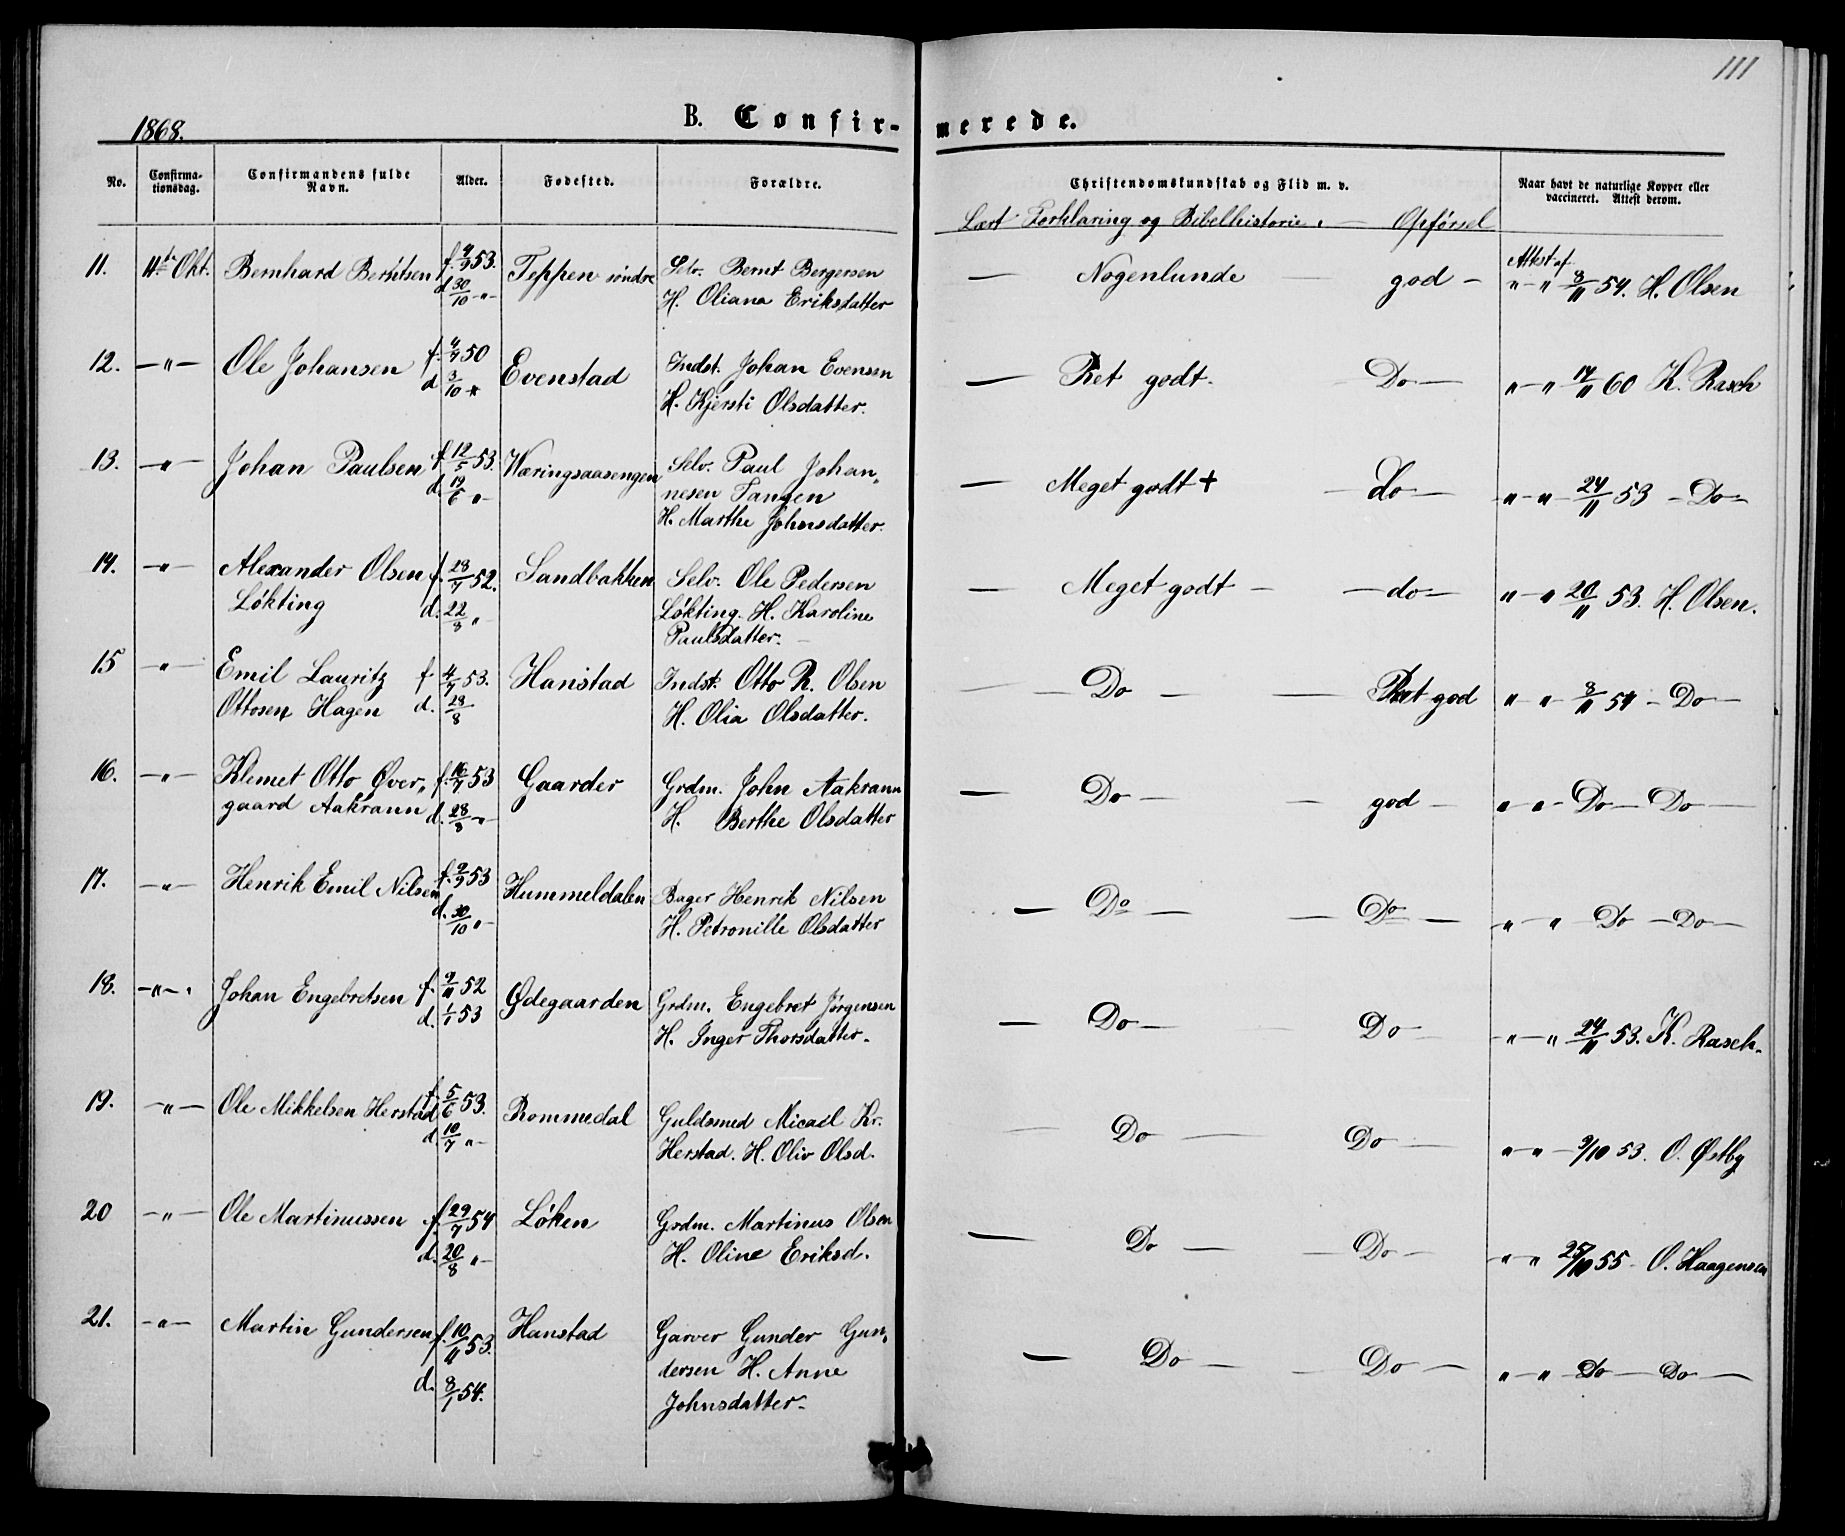 111
1868.
B. Confir- merede.
No. Confirma-tionsdag. Confirmandens fulde Navn. Alder. Fødested. Forældre. Christendomskundskab og Flid m. v. Naar havt de naturlige Kopper eller vaccineret. Attest derom.
Lært Forklaring og Bibelhistorie. — Opførsel
11. 11te Okt. Bernhard Berntsen f. 9/9 53. Teppen søndre Selv. Bernt Bergersen — Nogenlunde — god — Attest af
d. 30/10 „— H. Oliana Eriksdatter „—„ 8/11 54. H. Olsen
12. —„— Ole Johansen f. 4/9 50 Evenstad Indst. Johan Evensen — Ret godt. Do — „—„ 14/11 60 K. Rasch
d 3/10 „ H. Kjersti Olsdatter.
13. —„— Johan Paulsen f. 12/5 53. Wæringsaasengen Selv. Paul Johan„ — Meget godt + — do — „—„— 24/11 53 — Do —
d. 19/6 „— nesen Tangen
H. Marthe Johnsdatter.
14. —„— Alexander Olsen f. 28/7 52. Sandbakken Selv. Ole Pedersen — Meget godt — — do — „—„ 20/11 53. H. Olsen.
Løkting d. 22/8 „— Løkting. H. Karoline
Paulsdatter. —
15 —„— Emil Lauritz f. 4/7 53. Hanstad Indst. Otto R. Olsen — — Do — — Ret god „—„— 8/11 54 — Do —
Ottosen Hagen d. 28/8 H. Olia Olsdatter.
16. —„— Klemet Otto Øver„ f. 16/7 53 Gaarder Grdm. John Aakrann — Do — — god — „—„— Do — Do —
gaard Aakrann d. 28/8 „— H. Berthe Olsdatter
17. —„— Henrik Emil Nilsen f. 9/9 53 Hummeldalen Bager Henrik Nilsen — Do — — Do — „—„ Do — Do —
d. 30/10 „— H. Petronille Olsdatter
18. —„— Johan Engebretsen f. 9/11 52 Ødegaarden Grdm. Engebret Jørgensen — Do — Do — —„—„ 24/11 53. K. Rasch.
d. 1/1 53 H. Inger Thorsdatter.
19. —„— Ole Mikkelsen Herstad f. 5/6 53. Rommedal Guldsmed Micael Kr. — Do — Do — „—„— 9/10 53. O. Østby
d. 10/7 „— Herstad. H. Oliv Olsd.
20 —„— Ole Martinussen f. 29/7 54 Løken Grdm. Martinus Olsen — Do — — Do — „—„ 25/10 55 — O. Haagensen
d. 20/8 „— H. Oline Eriksd.
21. —„— Martin Gundersen f. 10/11 53. Hanstad Garver Gunder Gun„ — Do — — Do — „—„— Do — Do —
d. 8/1 54. dersen H. Anne
Johnsdatter.